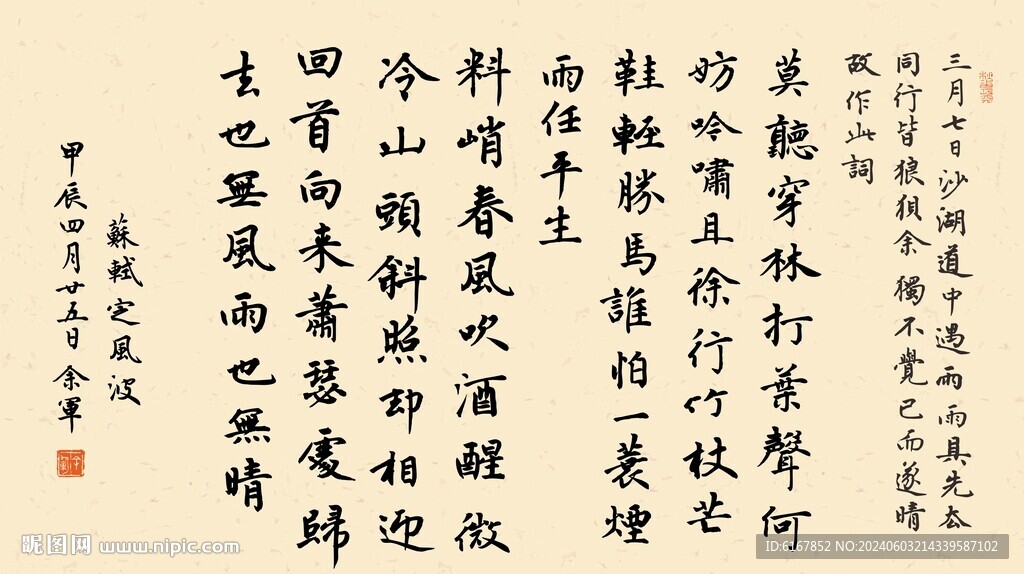 三月七日沙湖道中遇雨雨具先去
同行皆狼狽余獨不覺已而遂晴
故作此詞
莫聽穿林打葉聲何
妨吟嘯且徐行竹杖芒
鞋輕勝馬誰怕一蓑煙
雨任平生
料峭春風吹酒醒微
冷山頭斜照却相迎
回首向来蕭瑟處歸
去也無風雨也無晴
蘇軾定風波
甲辰四月廿五日余軍
昵图网 www.nipic.com
ID:6167852 NO:20240603214339587102